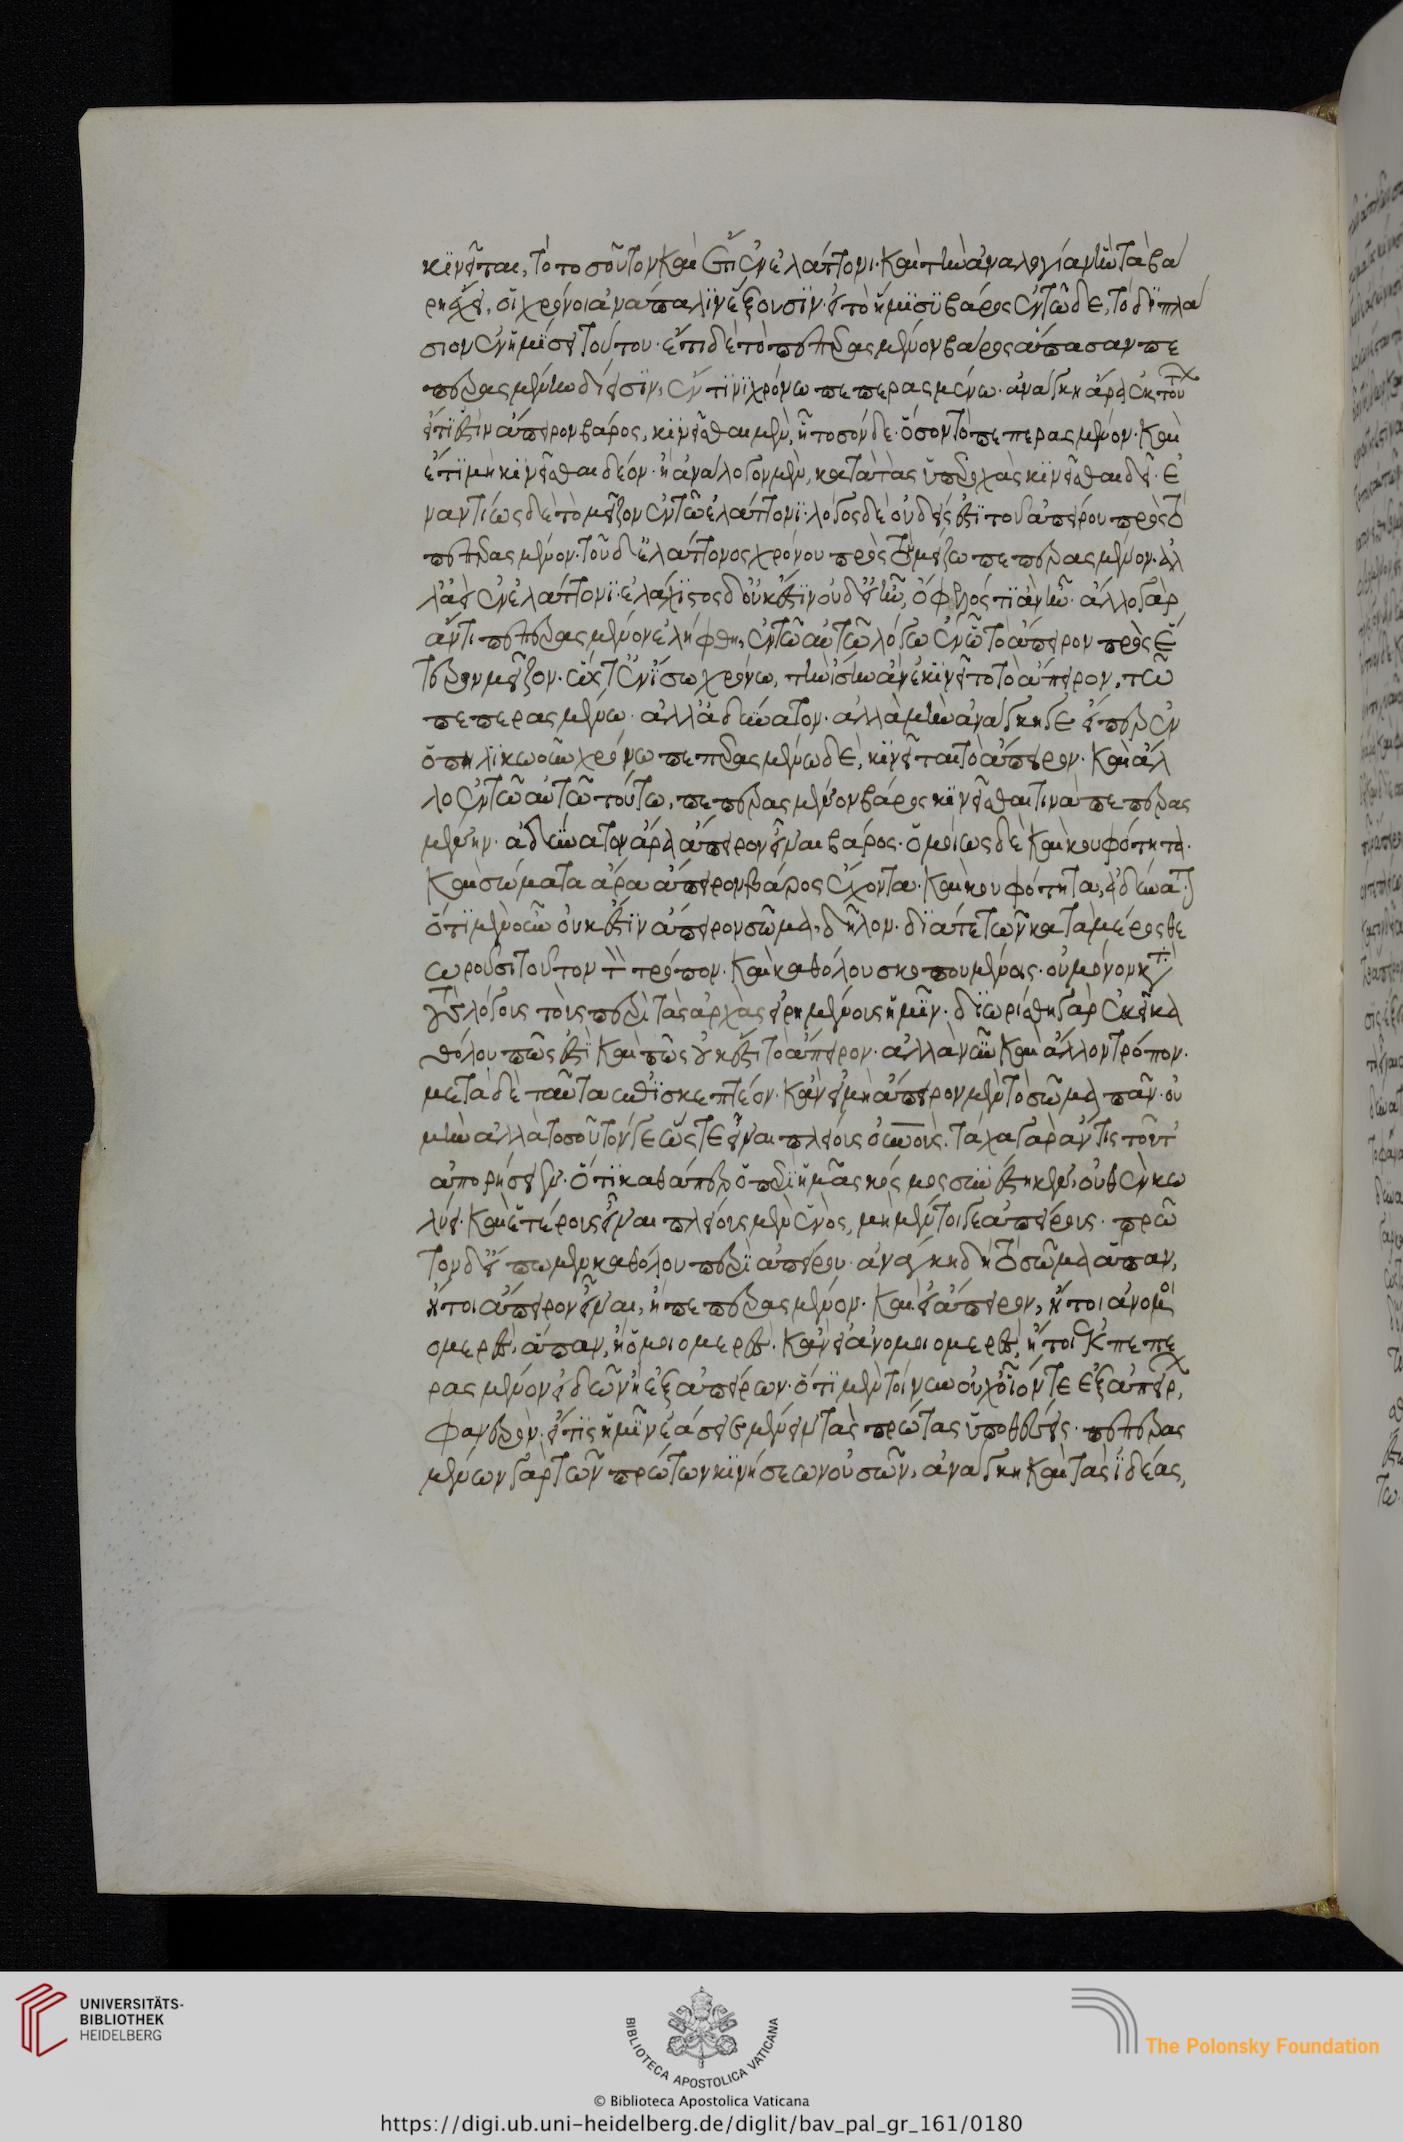 κινεῖται, τὸ τοσοῦτον καὶ ἔτι ἐν ἐλάττονι. καὶ τὴν ἀναλογίαν ἣν τὰ βά
ρη ἔχει, οἱ χρόνοι ἀνάπαλιν ἕξουσιν. εἰ τὸ ἥμισυ βάρος ἐν τῶδε, τὸ διπλά
σιον ἐν ἡμίσει τούτου. ἔτι δὲ τὸ πεπερασμένον βάρος ἅπασαν πε
περασμένην δίεισιν, ἔν τινι χρόνω πεπερασμένω. ἀνάγκη ἄρα ἐκ τούτων
εἴ τι ἐστὶν ἄπειρον βάρος, κινεῖσθαι μὲν, ἧ τοσόνδε ὅσον τὸ πεπερασμένον. καὶ
ἔτι μὴ κινεῖσθαι δέον. ἧ ἀνάλογον μὲν, κατὰ τὰς ὑπεροχὰς κινεῖσθαι δεῖ. ἐ
ναντίως δὲ τὸ μεῖζον ἐν τῶ ἐλάττονι. λόγος δὲ οὐδείς ἐστι τοῦ ἀπείρου πρὸς τὸ
πεπερασμένον. τοῦ δ' ἐλάττονος χρόνου πρὸς τὸν μείζω πεπερασμένον. ἀλ
λ' ἀεὶ ἐν ἐλάττονι. ἐλάχιστος δ' οὐκ ἔστιν οὐδ' εἰ ἦν, ὄφελός τι ἂν ἦν. ἄλλο γὰρ
ἄν τι πεπερασμένον ἐλήφθη, ἐν τῶ αὐτῶ λόγω ἐν ὧ τὸ ἄπειρον πρὸς ἕ
τερον μεῖζον. ὥστ' ἐν ἴσω χρόνω, τὴν ἴσην ἂν ἐκινεῖτο τὸ ἄπειρον, τῶ
πεπερασμένω. ἀλλ' ἀδύνατον. ἀλλὰ μὴν ἀνάγκη γε εἴπερ ἐν
ὁπηλικωοῦν χρόνω πεπερασμένω δὲ, κινεῖται τὸ ἄπειρον. καὶ ἄλ
λο ἐν τῶ αὐτῶ τούτω, πεπερασμένον βάρος κινεῖσθαι τινὰ πεπερασ
μένην. ἀδύνατον ἄρα ἄπειρον εἶναι βάρος. ὁμοίως δὲ καὶ κουφότητα.
καὶ σώματα ἄρα ἄπειρον βάρος ἔχοντα. καὶ κουφότητα, ἀδύνατον
ὅτι μὲν οὖν οὐκ ἔστιν ἄπειρον σῶμα, δῆλον. διά τε τῶν κατὰ μέρος θε
ωροῦσι τοῦτον τὸν τρόπον. καὶ καθόλου σκοπουμένοις. οὐ μόνον κατὰ
τοὺς λόγοις τοῖς περὶ τὰς ἀρχὰς εἰρημένοις ἡμῖν. διωρίσθη γὰρ ἐκεῖ κα
θόλου πῶς ἐστι καὶ πῶς οὐκ ἔστι τὸ ἄπειρον. ἀλλὰ νῦν καὶ ἄλλον τρόπον.
μετὰ δὲ ταῦτα ἐπισκεπτέον. κἂν εἰ μὴ ἄπειρον μὲν τὸ σῶμα πᾶν. οὐ
μὴν ἀλλὰ τοσοῦτόν γε ὥστε εἶναι πλείους οὐνους. τάχα γὰρ ἄν τις τοῦτ'
ἀπορήσειεν. ὅτι καθάπερ ὁ περὶ ἡμᾶς κόσμος συνέστηκεν, οὐθὲν κω
λύει. καὶ ἑτέρους εἶναι πλείους μὲν ἑνὸς, μὴ μέντοι γε ἀπείρους. πρῶ
τον δ' εἴπωμεν καθόλου περὶ ἀπείρου. ἀνάγκη δὴ τὸ σῶμα ἅπαν,
ἤτοι ἄπειρον εἶναι, ἢ πεπερασμένον. καὶ εἰ ἄπειρον, ἤτοι ἀνομοι
ομερὲς ἅπαν, ἢ ὁμοιομερές. κἂν εἰ ἀνομοιομερὲς, ἤτοι ἐκ πεπε
ρασμένων εἰδῶν ἢ ἐξ ἀπείρων. ὅτι μὲν τοίνυν οὐχ οἷόν τε ἐξ ἀπείρων,
φανερὸν. εἴ τις ἡμῖν ἐάσει μένειν τὰς πρώτας ὑποθέσεις. πεπερασ
μένων γὰρ τῶν πρώτων κινήσεων οὐσῶν, ἀνάγκη καὶ τὰς ἰδέας,
UNIVERSITÄTS-
BIBLIOTHEK
HEIDELBERG
BIBLIOTECA APOSTOLICA VATICANA
The Polonsky Foundation
© Biblioteca Apostolica Vaticana
https://digi.ub.uni-heidelberg.de/diglit/bav_pal_gr_161/0180